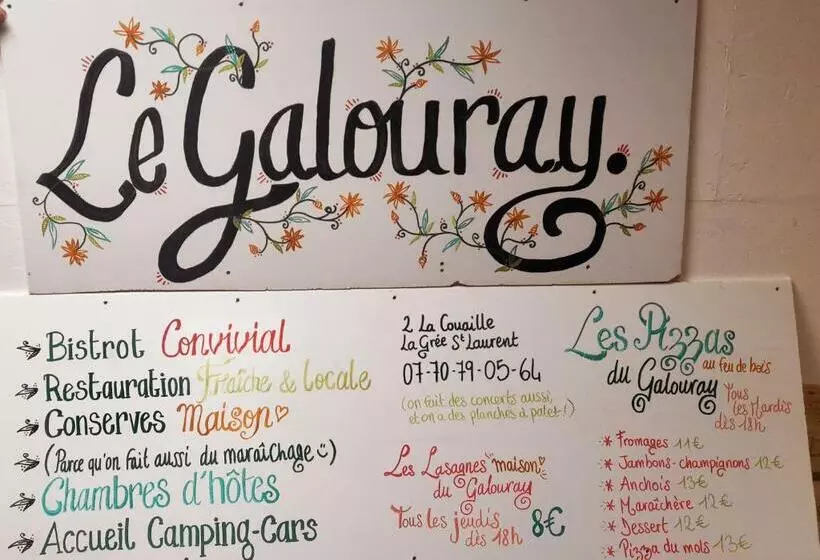 Le Galouray.
Bistrot Convivial
Restauration Fraîche & Locale
Conserves Maison
(Parce qu'on fait aussi du maraîchage :))
Chambres d'hôtes
Accueil Camping-Cars
2 La Couaille
La Grée St Laurent
07-70-79-05-64
(on fait des concerts aussi,
et on a des planches à patet !)
Les Lasagnes "maison"
du Galouray
Tous les jeudis
dès 18h
8€
Les Pizzas
au feu de bois
du Galouray
Tous
les Mardis
dès 18h
* Fromages 11€
* Jambons-champignons 12€
* Anchois 13€
* Maraîchère 12€
* Dessert 12€
* Pizza du mois 13€